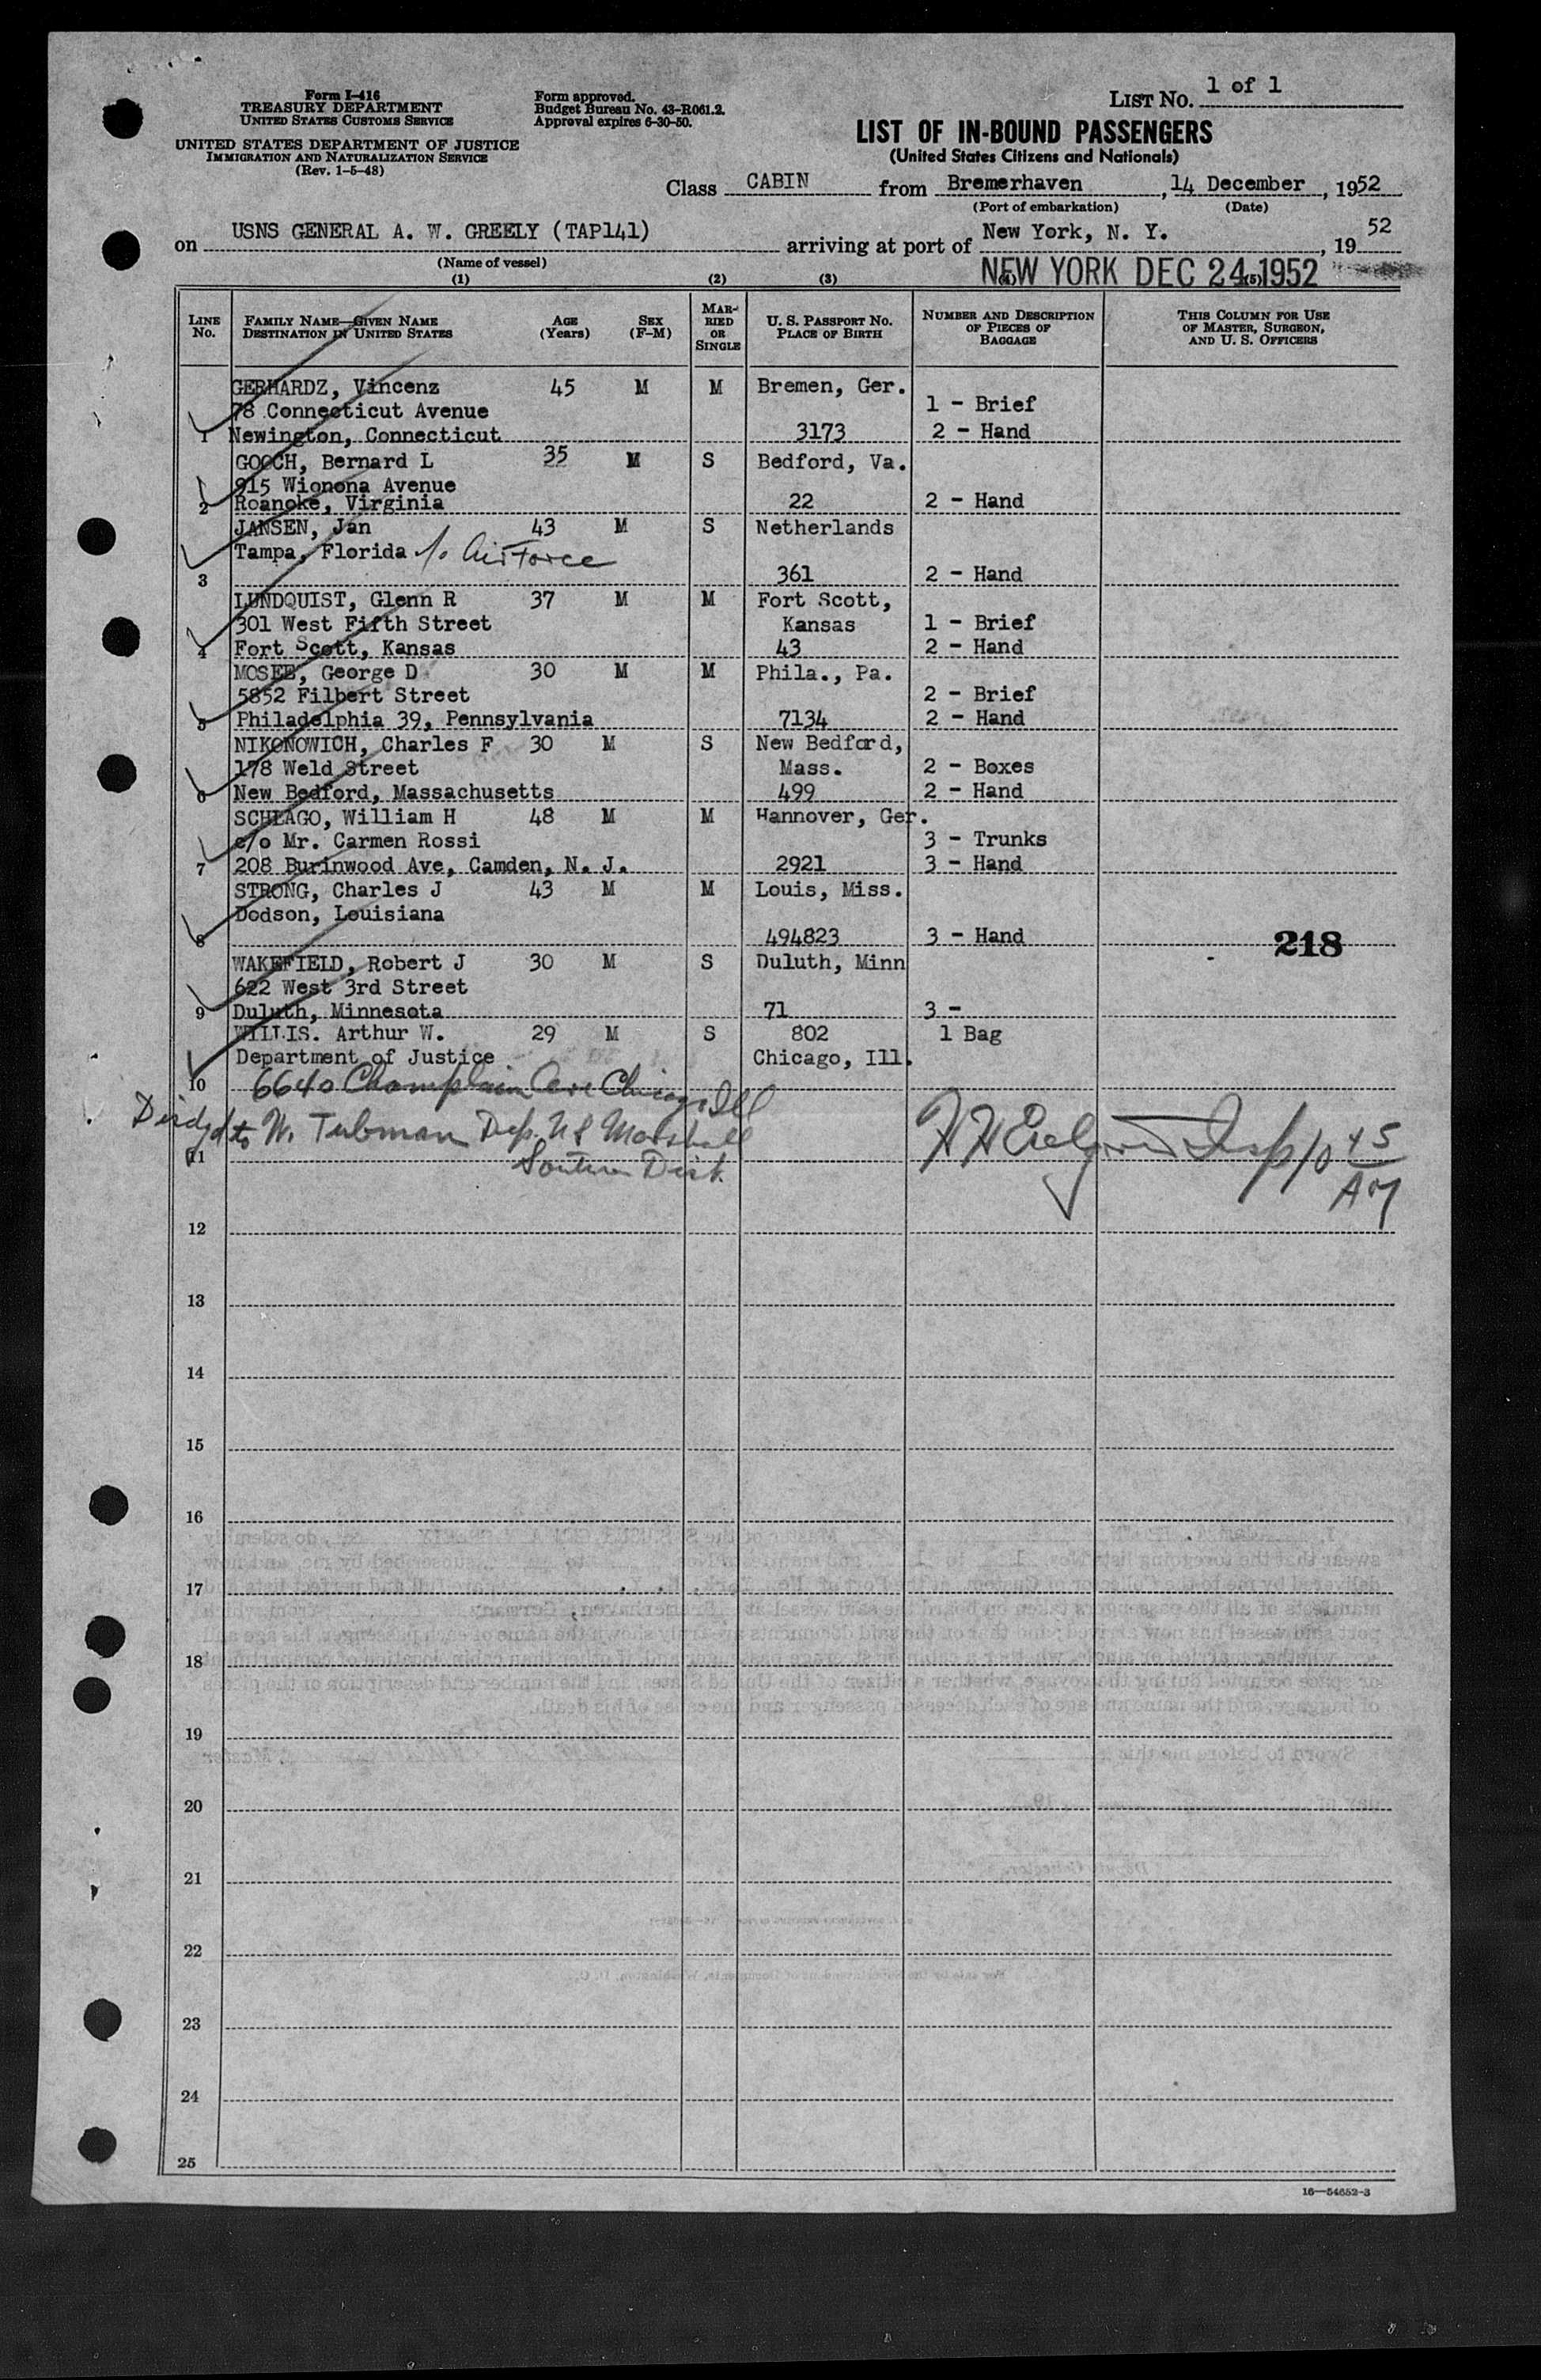 Form I-416
TREASURY DEPARTMENT
UNITED STATES CUSTOMS SERVICE
UNITED STATES DEPARTMENT OF JUSTICE
IMMIGRATION AND NATURALIZATION SERVICE
(Rev. 1-5-48)
Form approved.
Budget Bureau No. 43-R061.2.
Approval expires 6-30-50.
LIST No. 1 of 1
LIST OF IN-BOUND PASSENGERS
(United States Citizens and Nationals)
Class CABIN from Bremerhaven, 14 December, 1952
(Port of embarkation) (Date)
on USNS GENERAL A. W. GREELY (TAP141) arriving at port of New York, N. Y., 19 52
(Name of vessel)
NEW YORK DEC 24 1952
(1) (2) (3) (4) (5)
LINE No. FAMILY NAME—GIVEN NAME DESTINATION IN UNITED STATES AGE (Years) SEX (F-M) MARRIED OR SINGLE U. S. PASSPORT No. PLACE OF BIRTH NUMBER AND DESCRIPTION OF PIECES OF BAGGAGE THIS COLUMN FOR USE OF MASTER, SURGEON, AND U. S. OFFICERS
GERHARDZ, Vincenz 45 M M Bremen, Ger.
78 Connecticut Avenue 1 - Brief
1 Newington, Connecticut 3173 2 - Hand
GOOCH, Bernard L 35 M S Bedford, Va.
915 Wionona Avenue
2 Roanoke, Virginia 22 2 - Hand
JANSEN, Jan 43 M S Netherlands
Tampa, Florida Air Force
3 361 2 - Hand
LUNDQUIST, Glenn R 37 M M Fort Scott,
301 West Fifth Street Kansas 1 - Brief
4 Fort Scott, Kansas 43 2 - Hand
MOSEE, George D 30 M M Phila., Pa.
5852 Filbert Street 2 - Brief
5 Philadelphia 39, Pennsylvania 7134 2 - Hand
NIKONOWICH, Charles F 30 M S New Bedford,
178 Weld Street Mass. 2 - Boxes
6 New Bedford, Massachusetts 499 2 - Hand
SCHLAGO, William H 48 M M Hannover, Ger.
c/o Mr. Carmen Rossi 3 - Trunks
7 208 Burinwood Ave, Camden, N. J. 2921 3 - Hand
STRONG, Charles J 43 M M Louis, Miss.
Dodson, Louisiana
8 494823 3 - Hand 218
WAKEFIELD, Robert J 30 M S Duluth, Minn
622 West 3rd Street
9 Duluth, Minnesota 71 3 -
WILLIS. Arthur W. 29 M S 802 1 Bag
Department of Justice Chicago, Ill.
10 6640 Champlain Ave Chicago Ill
to W. Tubman Dep. U S Marshall
11 Southern Dist. Insp 10 45
AM
12
13
14
15
16
17
18
19
20
21
22
23
24
25
16—54652-3